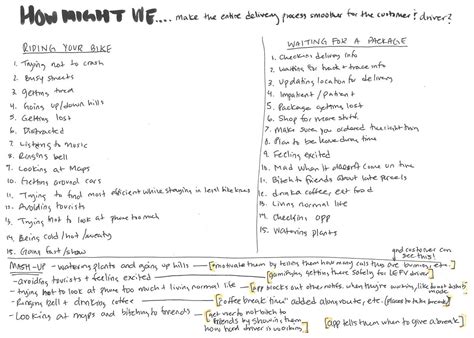 HOW MIGHT WE.... make the entire delivery process smoother for the customer? driver?
RIDING YOUR BIKE
1. Trying not to crash
2. Busy streets
3. getting tired
4. Going up/down hills
5. Getting lost
6. Distracted
7. Listening to music
8. Ringing bell
9. Looking at Maps
10. Getting around cars
11. Trying to find most efficient while staying in legal bike lanes
12. Avoiding tourists
13. Trying not to look at phone too much
14. Being cold/hot/sweaty
15. Going fast/slow
WAITING FOR A PACKAGE
1. Checking delivery info
2. Waiting for track + trace info
3. Updating location for delivery
4. Impatient / Patient
5. Package getting lost
6. Shop for more stuff
7. Make sure you ordered the right item
8. Plan to be home during time
9. Feeling excited
10. Mad when it doesn't come on time
11. Bitch to friends about late parcels
12. drink coffee, eat food
13. Living normal life
14. Checking app
15. Watering plants
and customer can see this!
MASH-UP - watering plants and going up hills → motivate them by telling them how many cals they are burning, etc.
- avoiding tourists + feeling excited → gamifying getting there safely for LEFV driver!
- trying not to look at phone too much + living normal life → app blocks out other notes. when they're working, like do not disturb mode
- Ringing bell + drinking coffee → "coffee break time" added along route, etc. (places to take break)
- Looking at maps and bitching to friends → get user to not bitch to friends by showing them how hard driver is working
app tells them when to give a break!